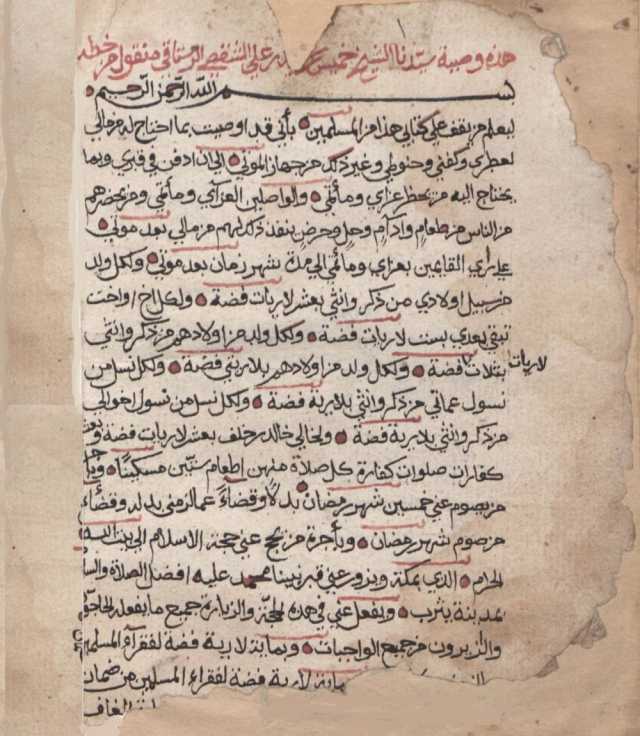 هذه وصية سيدنا الشيخ خميس بن سعيد بن علي الشقصي الرستاقي منقول من خطه
بسم الله الرحمن الرحيم
ليعلم من يقف على كتابي هذا من المسلمين بأني قد اوصيت بما احتاج له من مالي
لعطري وكفني وحنوطي وغير ذلك من جهاز الموتى الى ان ادفن في قبري وبما
يحتاج اليه من يحظر عزاي ومأتمي والواصلين العزآئي ومأتمي ومن يحضرهم
من الناس من طعام وادام وحل وحرض ينفد ذلك لهم من مالي بعد موتي
على راي القايمين بعزاي ومأتمي الى مدة شهر زمان بعد موتي ولكل ولد
من سبيل اولادي من ذكر وانثى بعشر لاريات فضة ولكل اخ واخت
تبقى بعدي بست لاريات فضة ولكل ولد من اولادهم من ذكر وانثى
بثلاث لاريات فضة ولكل ولد من اولادهم بلاريتي فضة ولكل نسل من
نسول عماتي من ذكر وانثى بلارية فضة ولكل نسل من نسول اخوالي
من ذكر وانثى بلارية فضة ولخالي خالد بن خلف بعشر لاريات فضة وبعشر
كفارات صلوات كفارة كل صلاة منهن اطعام ستين مسكينا وبأجرة
من يصوم عني خمسين شهر رمضان بدلا وقضاء عما لزمني بدله وقضاءه
من صوم شهر رمضان وبأجرة من يحج عني حجة الاسلام الى بيت الله
الحرام الذي بمكة ويزور عني قبر نبينا محمد عليه افضل الصلاة والسلام
بمدينة يثرب ويفعل عني في هذه الحجة والزيارة جميع ما يفعله الحاجون
والزايرون من جميع الواجبات وبماية لارية فضة لفقرآء المسلمين
ماية لارية فضة لفقراء المسلمين من ضمان
الغاف